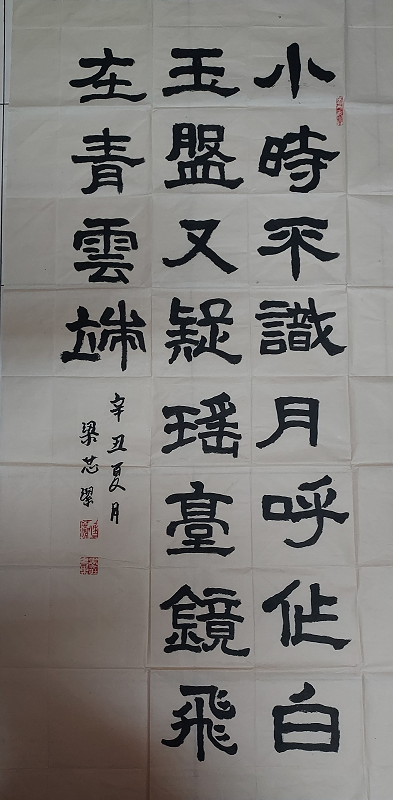 小時不識月呼作白
玉盤又疑瑶臺鏡飛
在青雲端
辛丑夏月
梁芯